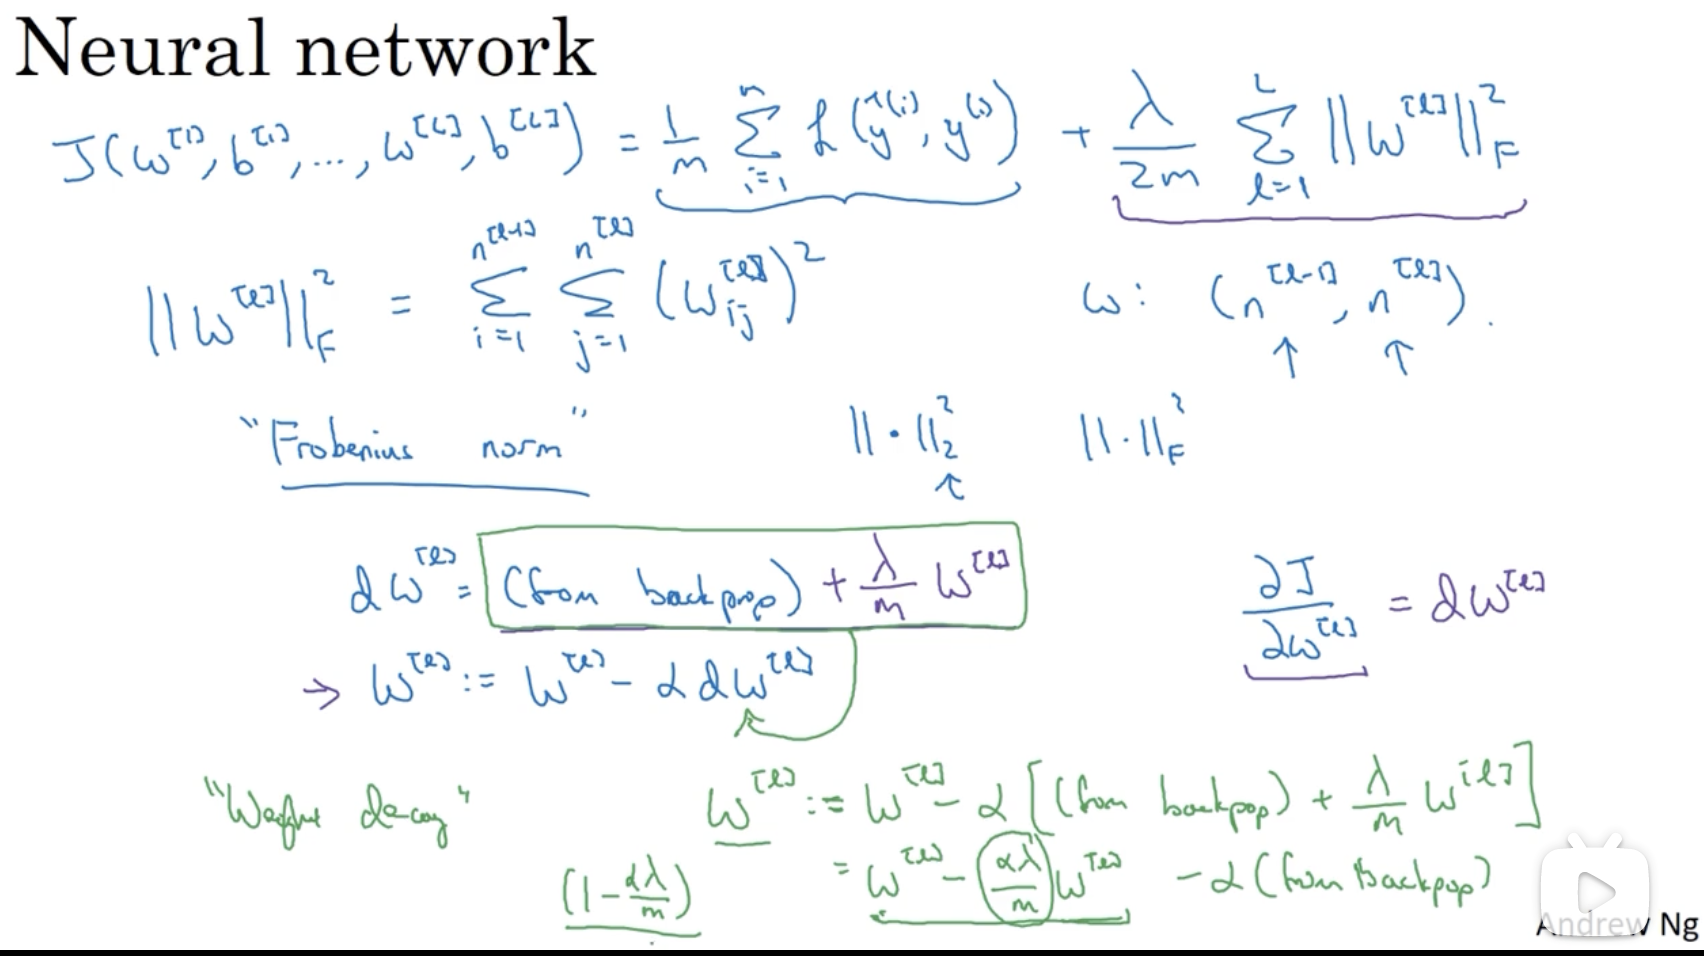 Neural network
J(w^[1], b^[1], ..., w^[L], b^[L]) = 1/m Σ_{i=1}^{n} ℒ(ŷ^(i), y^(i)) + λ/2m Σ_{l=1}^{L} ||w^[l]||_F^2
||w^[l]||_F^2 = Σ_{i=1}^{n^[l-1]} Σ_{j=1}^{n^[l]} (w_ij^[l])^2    w: (n^[l-1], n^[l]).
↑ ↑
"Frobenius norm"    ||·||_2^2    ||·||_F^2
↑
dw^[l] = (from backprop) + λ/m w^[l]    ∂J/∂w^[l] = dw^[l]
→ w^[l] := w^[l] - α dw^[l]
"Weight decay"    w^[l] := w^[l] - α [(from backpop) + λ/m w^[l]]
(1 - αλ/m)    = w^[l] - αλ/m w^[l] - α (from backpop)
Andrew Ng